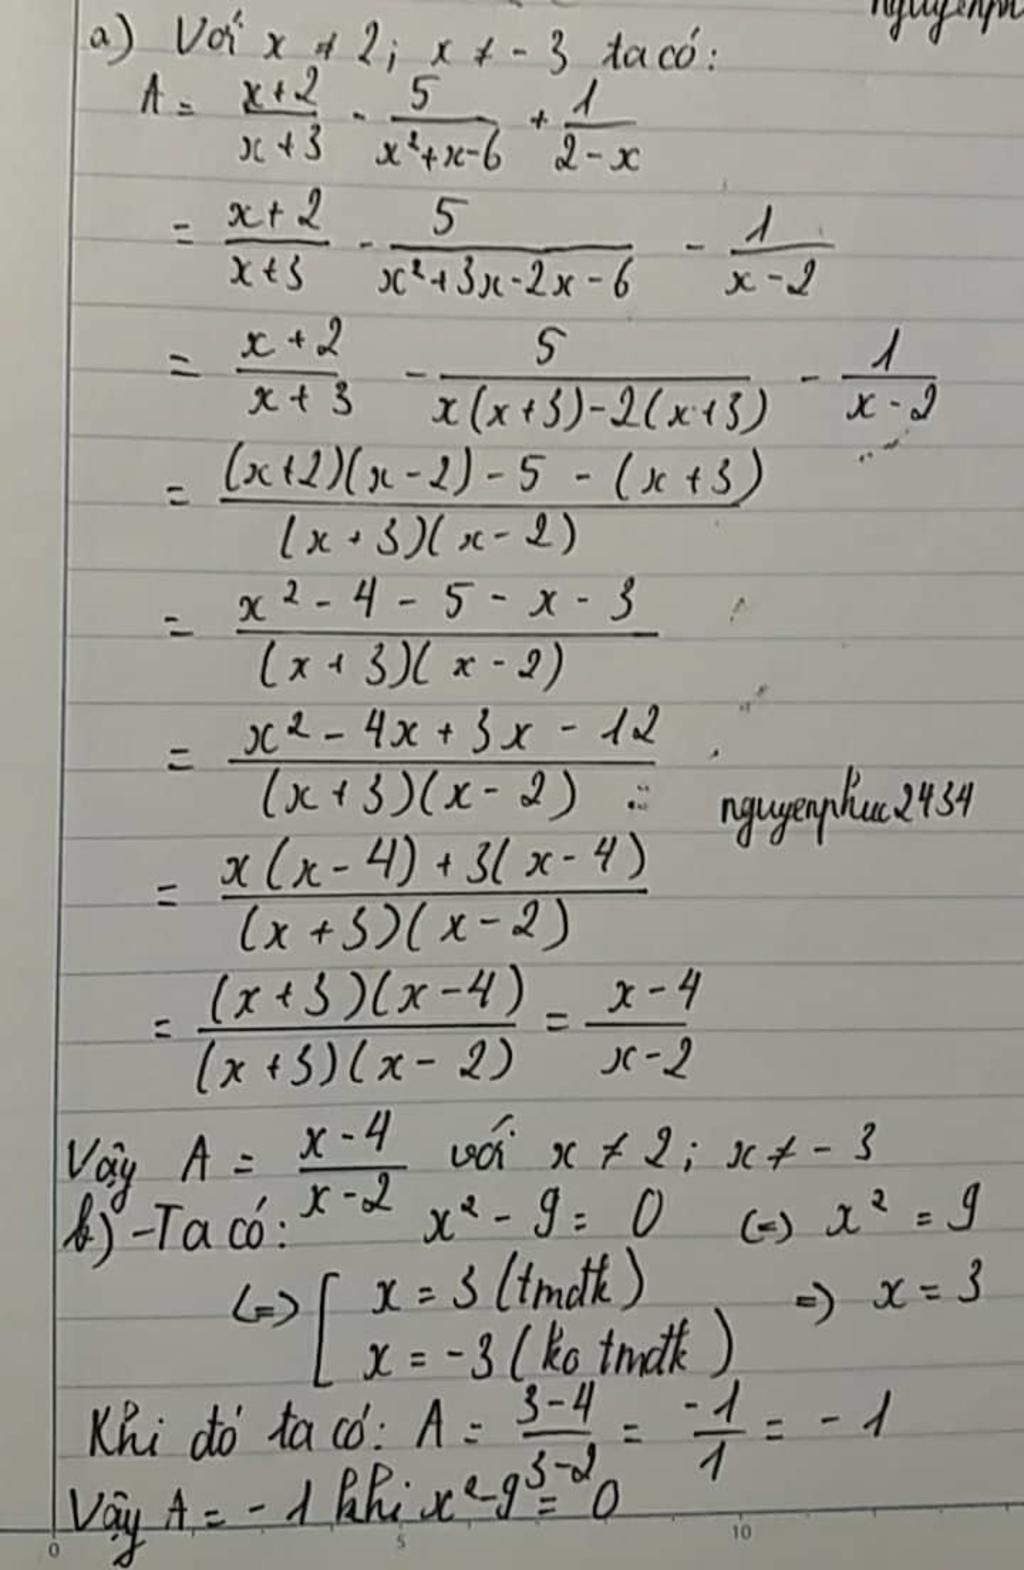 nguyenph
a) Với x ≠ 2; x ≠ - 3 ta có:
A = (x+2)/(x+3) - 5/(x²+x-6) + 1/(2-x)
= (x+2)/(x+3) - 5/(x²+3x-2x-6) - 1/(x-2)
= (x+2)/(x+3) - 5/(x(x+3)-2(x+3)) - 1/(x-2)
= ((x+2)(x-2)-5-(x+3))/((x+3)(x-2))
= (x²-4-5-x-3)/((x+3)(x-2))
= (x²-4x+3x-12)/((x+3)(x-2))
nguyenphuc2434
= (x(x-4)+3(x-4))/((x+3)(x-2))
= ((x+3)(x-4))/((x+3)(x-2)) = (x-4)/(x-2)
Vậy A = (x-4)/(x-2) với x ≠ 2; x ≠ - 3
b) - Ta có: x² - 9 = 0 (=) x² = 9
(=) [ x = 3 (tmđk) =) x = 3
x = -3 (ko tmđk)
Khi đó ta có: A = (3-4)/(3-2) = -1/1 = - 1
Vậy A = - 1 khi x²-9 = 0
0 5 10